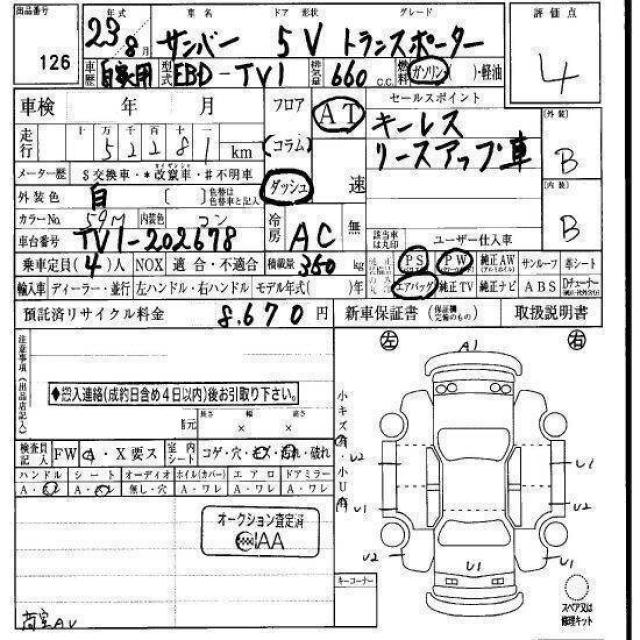 出品番号 年式 車名 ドア 形状 グレード 評価点
126 23年8月 サンバー 5V トランスポーター 4
車歴 自家用 型式 EBD-TV1 排気量 660 C.C. 燃料 ガソリン・( )・軽油
車検 年 月 フロア AT セールスポイント
走行 十 万 千 百 十 一 コラム キーレス 【外装】
52281 km リースアップ車 B
メーター歴 $交換車・*改竄車・#不明車 ダッシュ 速 【内装】
外装色 白 [ ] 色替は色替車と記入 B
カラーNo. 59M 内装色 コン 冷房 AC 無 該当車は丸印 ユーザー仕入車
車台番号 TV1-202678
乗車定員(4)人 NOX 適合・不適合 積載量 350 kg PS PW 純正AW (アルミホイル) サンルーフ 革シート
輸入車 ディーラー・並行 左ハンドル・右ハンドル モデル年式( )年 エアバッグ 純正TV 純正ナビ ABS
預託済リサイクル料金 8,670 円 新車保証書 (保証欄完備のもの) 取扱説明書
注意事項(出品店記入) 左 A1 右
◆搬入連絡(成約日含め4日以内)後お引取り下さい。
長さ 幅 高さ 小キズ有・小U有
× ×
検査員記入 FW ・X要ス 室内シート コゲ・穴・ ・汚れ・破れ U2 U1
ハンドル シート オーディオ ホイル(カバー) エアロ ドアミラー
A・ A・ 無し・穴 A・ワレ A・ワレ A・ワレ U1 U2
オークション査定済
IAA U2 U1 U1
キーコーナー
スペア又は修理キット
荷室AU